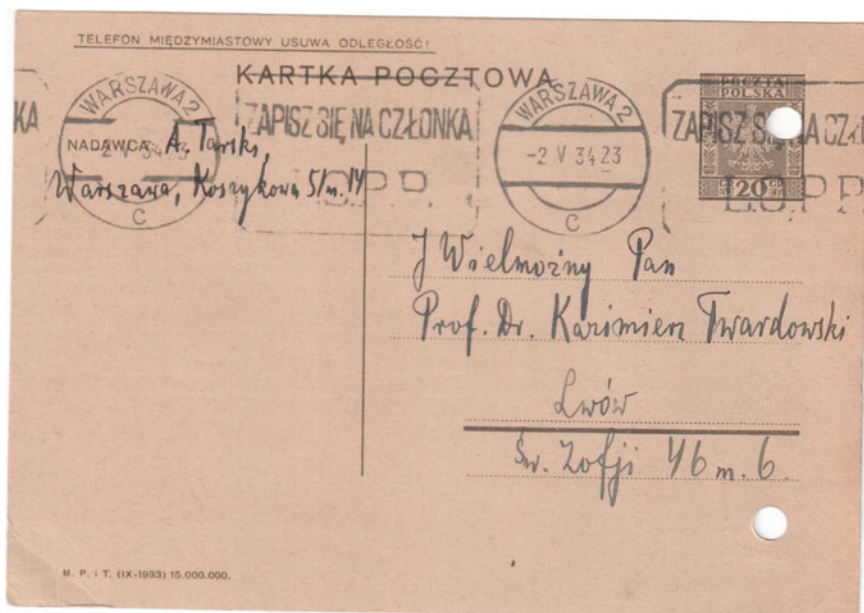 TELEFON MIĘDZYMIASTOWY USUWA ODLEGŁOŚĆ!
KARTKA POCZTOWA
POCZTA
POLSKA
KA
WARSZAWA 2
ZAPISZ SIĘ NA CZŁONKA
L.O.P.P.
WARSZAWA 2
ZAPISZ SIĘ NA CZŁ
L.O.P.P
-2 V 34 23
C
-2 V 34 23
C
GR 20 GR
NADAWCA: A. Tarski,
Warszawa, Koszykowa 51 m. 14
JWielmożny Pan
Prof. Dr. Kazimierz Twardowski
Lwów
Św. Zofji 46 m. 6.
M. P. i T. (IX-1933) 15.000.000.